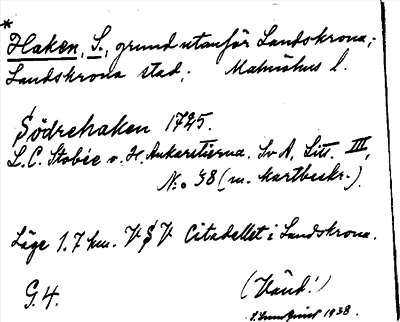 *
Haken, S., grund utanför Landskrona;
Landskrona stad; Malmöhus l.
Södrehaken 1725.
L.C. Stobée o. H. Ankarstierna. Sv A, Litt. III,
No 38 (m. kartbeskr.).
Läge 1.7 km. V S V Citadellet i Landskrona.
G.4.
(Vänd!)
1938.